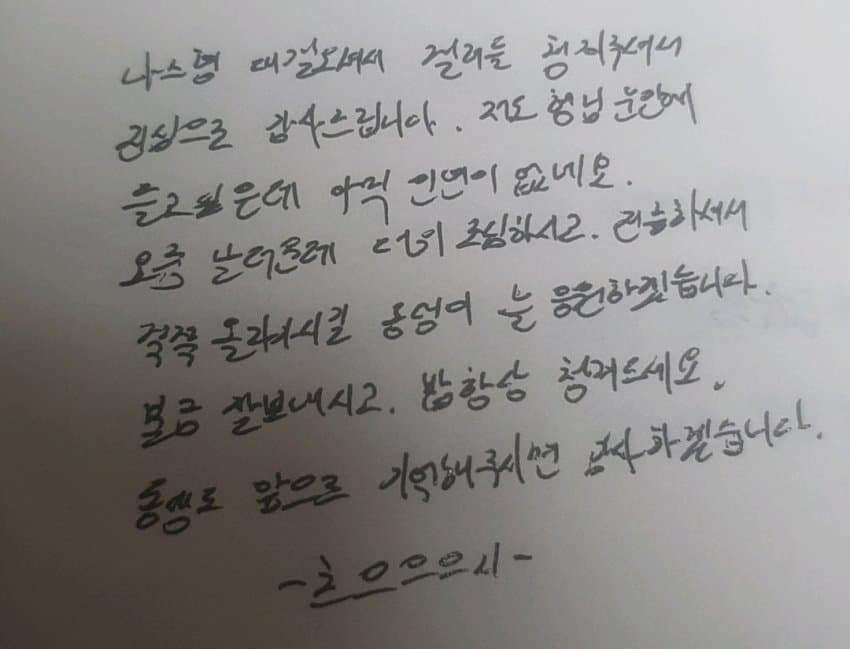 나스형 대결오셔서 걸리를 쳥져주셔서
진심으로 감사드립니다. 저도 형님 눈안에
들고싶은데 아직 인연이 없네요.
요즘 날더운데 더위 조심하시고. 건승하셔서
쭉쭉 올라가시길 동생이 늘 응원하겠습니다.
불금 잘보내시고. 밥항상 청겨드세요.
동생도 앞으로 기억해주시면 감사하겠습니다.
-흐으으으시-